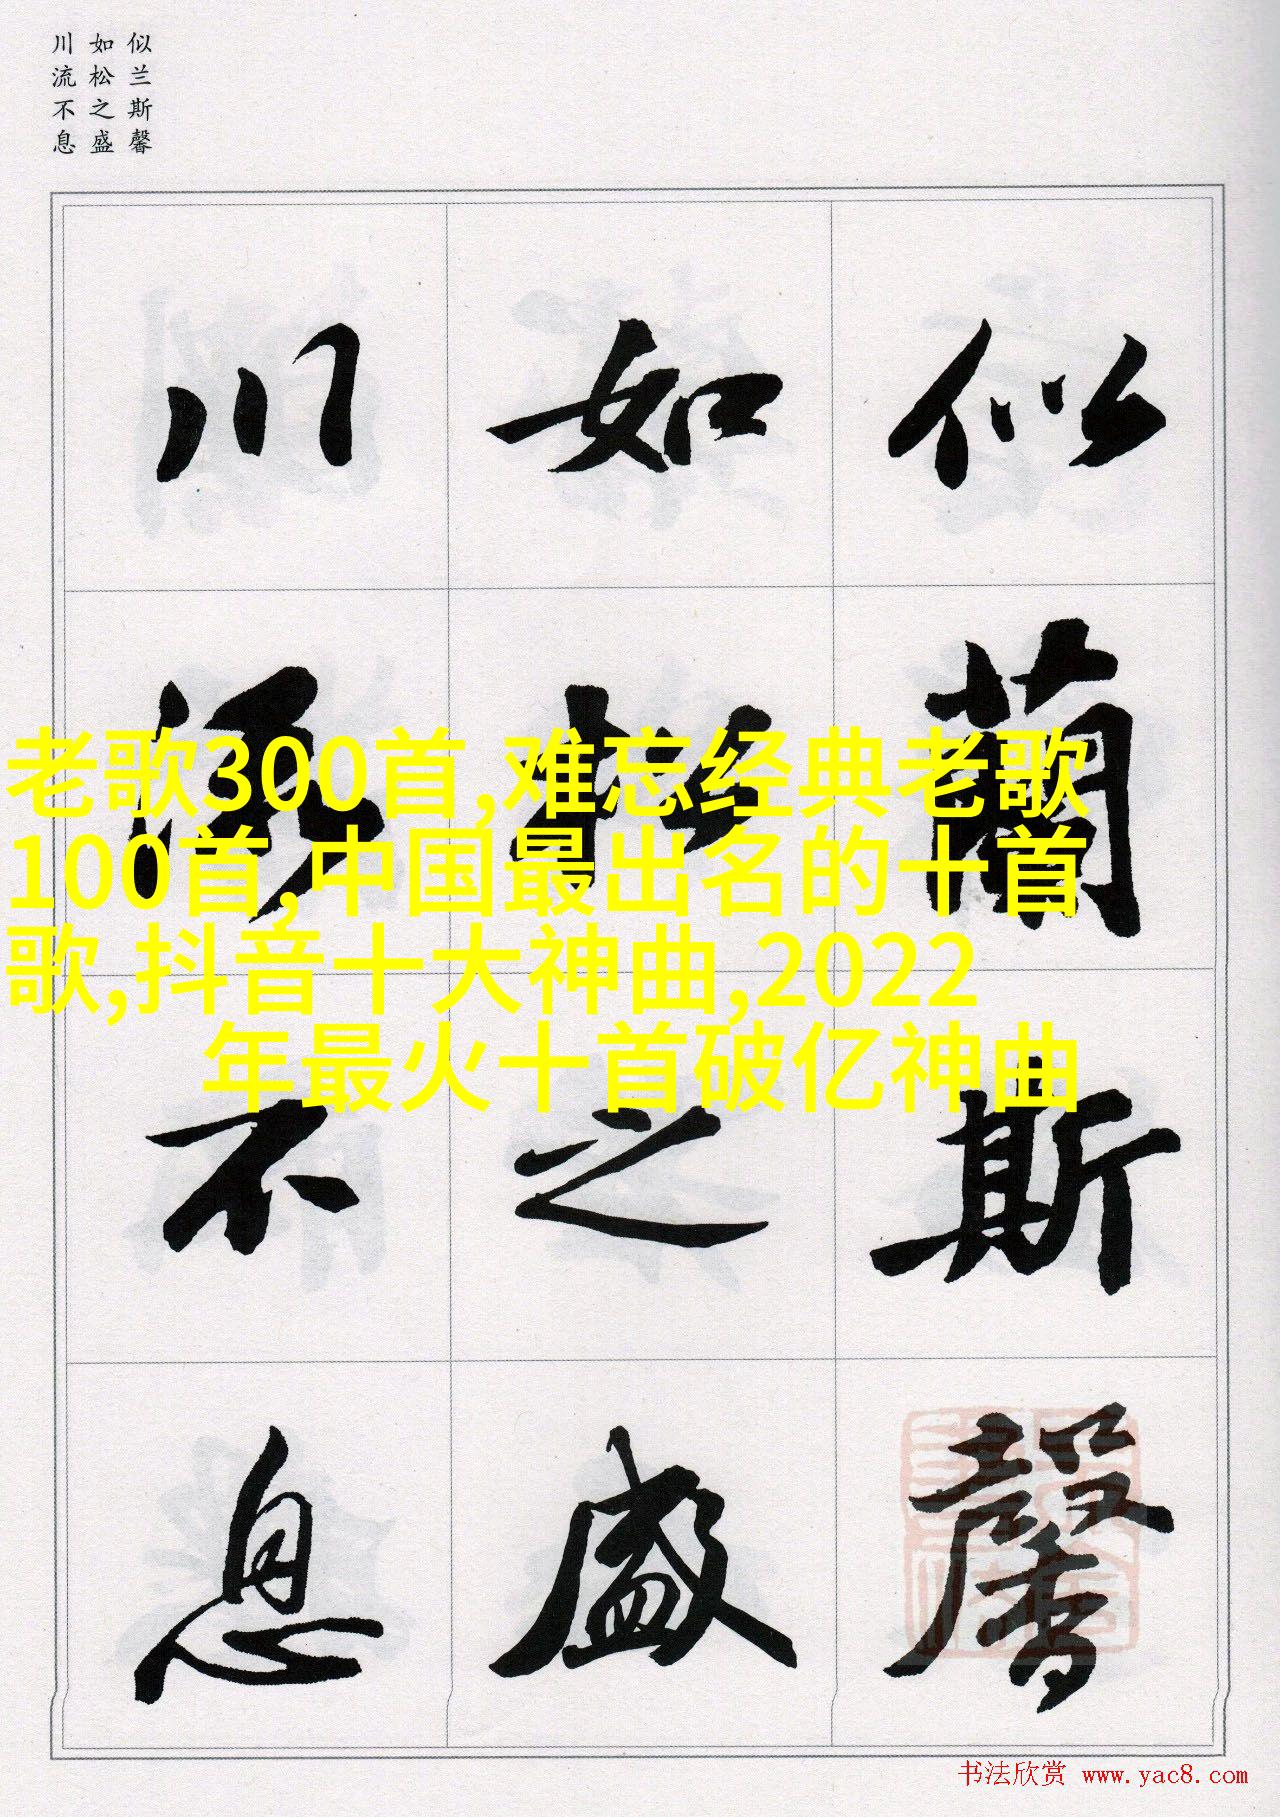 似兰斯馨
如松之盛
川流不息
似蘭斯馨
如松之盛
川流不息
老歌300首,难忘经典老歌
100首,中国最出名的十首
歌,抖音十大神曲,2022
年最火十首破亿神曲
书法欣赏 www.yac8.com